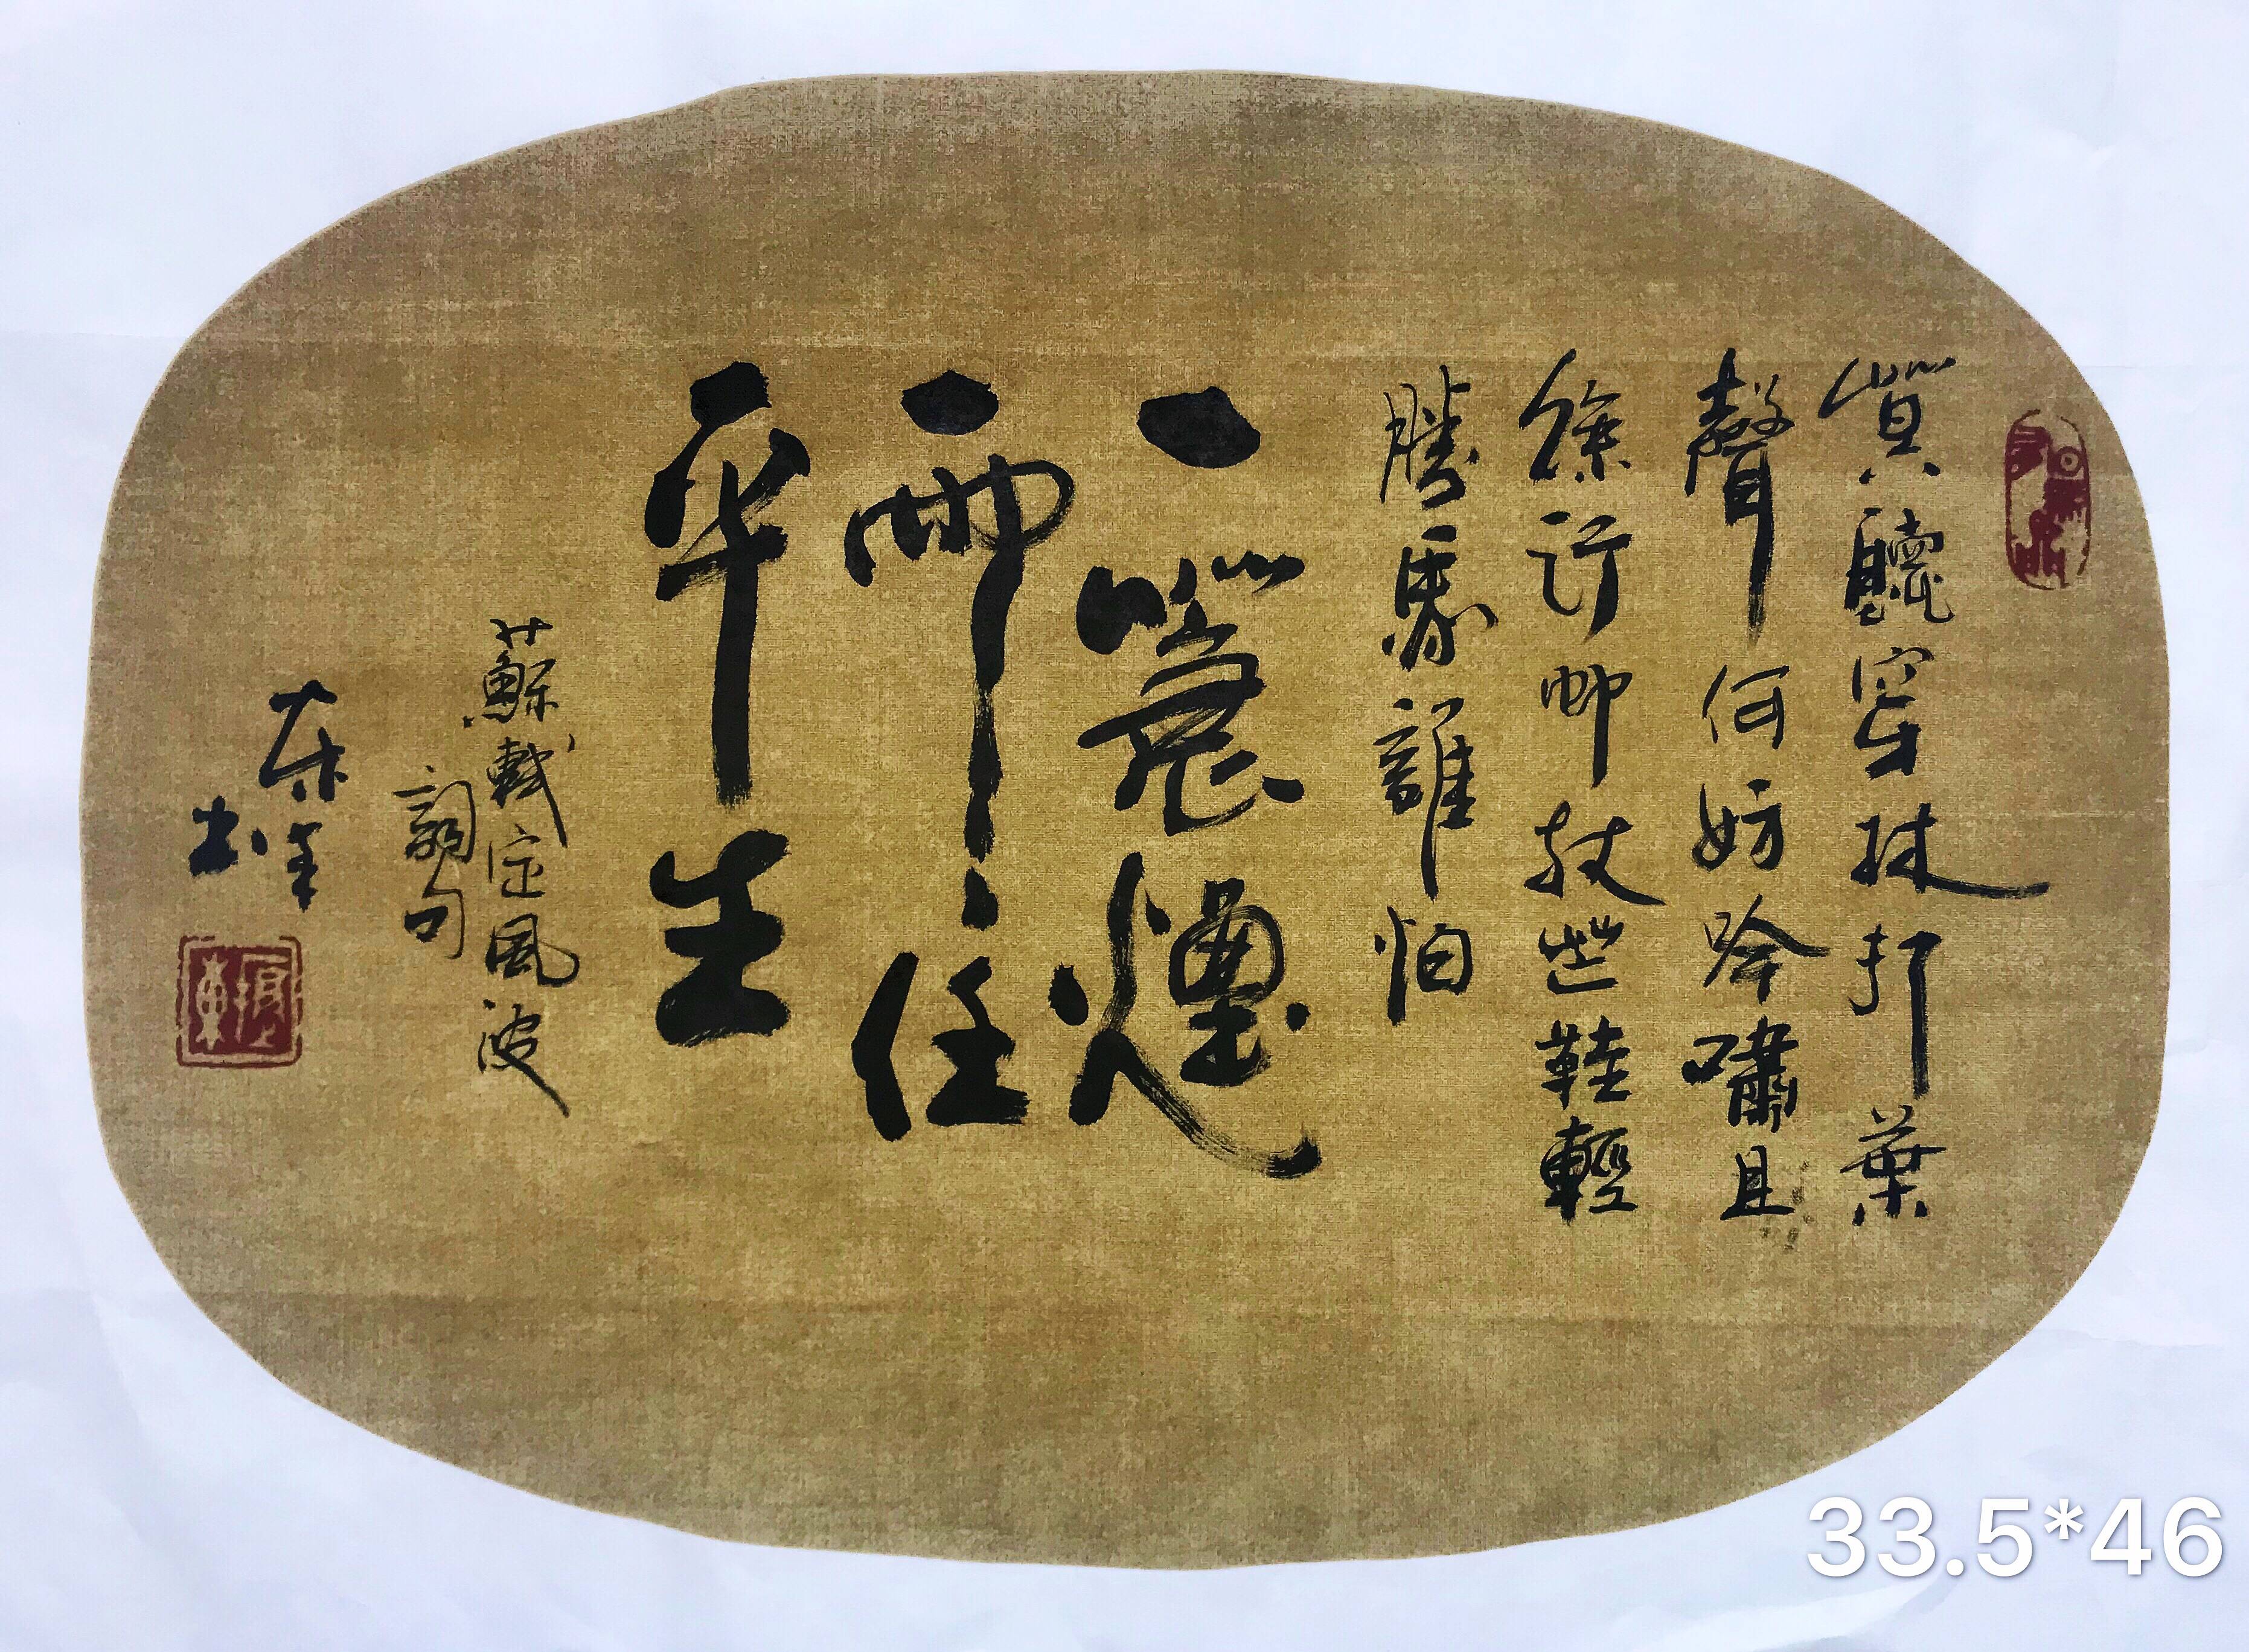 莫聽穿林打葉
聲何妨吟嘯且
徐行竹杖芒鞋輕
勝馬誰怕
一蓑煙
雨任
平生
蘇軾定風波
詞句
33.5*46